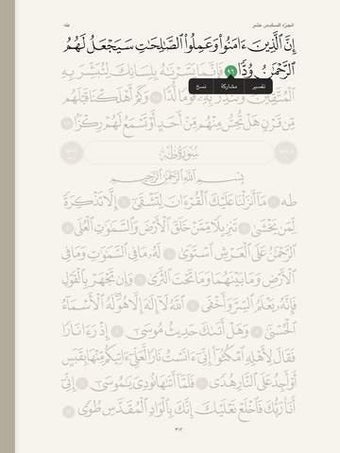 الجزء السادس عشر
طه
إِنَّ ٱلَّذِينَ ءَامَنُوا۟ وَعَمِلُوا۟ ٱلصَّـٰلِحَـٰتِ سَيَجْعَلُ لَهُمُ
ٱلرَّحْمَـٰنُ وُدًّا ٩٦ فَإِنَّمَا يَسَّرْنَـٰهُ بِلِسَانِكَ لِتُبَشِّرَ بِهِ
تفسير مشاركة نسخ
ٱلْمُتَّقِينَ وَتُنذِرَ بِهِۦ قَوْمًا لُّدًّا ٩٧ وَكَمْ أَهْلَكْنَا قَبْلَهُم
مِّن قَرْنٍ هَلْ تُحِسُّ مِنْهُم مِّنْ أَحَدٍ أَوْ تَسْمَعُ لَهُمْ رِكْزًۢا ٩٨
سُورَةُ طه
بِسْمِ ٱللَّهِ ٱلرَّحْمَـٰنِ ٱلرَّحِيمِ
طه ١ مَآ أَنزَلْنَا عَلَيْكَ ٱلْقُرْءَانَ لِتَشْقَىٰٓ ٢ إِلَّا تَذْكِرَةً
لِّمَن يَخْشَىٰ ٣ تَنزِيلًا مِّمَّنْ خَلَقَ ٱلْأَرْضَ وَٱلسَّمَـٰوَٰتِ ٱلْعُلَى ٤
ٱلرَّحْمَـٰنُ عَلَى ٱلْعَرْشِ ٱسْتَوَىٰ ٥ لَهُۥ مَا فِى ٱلسَّمَـٰوَٰتِ وَمَا فِى
ٱلْأَرْضِ وَمَا بَيْنَهُمَا وَمَا تَحْتَ ٱلثَّرَىٰ ٦ وَإِن تَجْهَرْ بِٱلْقَوْلِ
فَإِنَّهُۥ يَعْلَمُ ٱلسِّرَّ وَأَخْفَى ٧ ٱللَّهُ لَآ إِلَـٰهَ إِلَّا هُوَ لَهُ ٱلْأَسْمَآءُ
ٱلْحُسْنَىٰ ٨ وَهَلْ أَتَىٰكَ حَدِيثُ مُوسَىٰٓ ٩ إِذْ رَءَا نَارًا
فَقَالَ لِأَهْلِهِ ٱمْكُثُوٓا۟ إِنِّىٓ ءَانَسْتُ نَارًا لَّعَلِّىٓ ءَاتِيكُم مِّنْهَا بِقَبَسٍ
أَوْ أَجِدُ عَلَى ٱلنَّارِ هُدًى ١٠ فَلَمَّآ أَتَىٰهَا نُودِىَ يَـٰمُوسَىٰٓ ١١ إِنِّىٓ
أَنَا۠ رَبُّكَ فَٱخْلَعْ نَعْلَيْكَ إِنَّكَ بِٱلْوَادِ ٱلْمُقَدَّسِ طُوًى ١٢
٣١٢